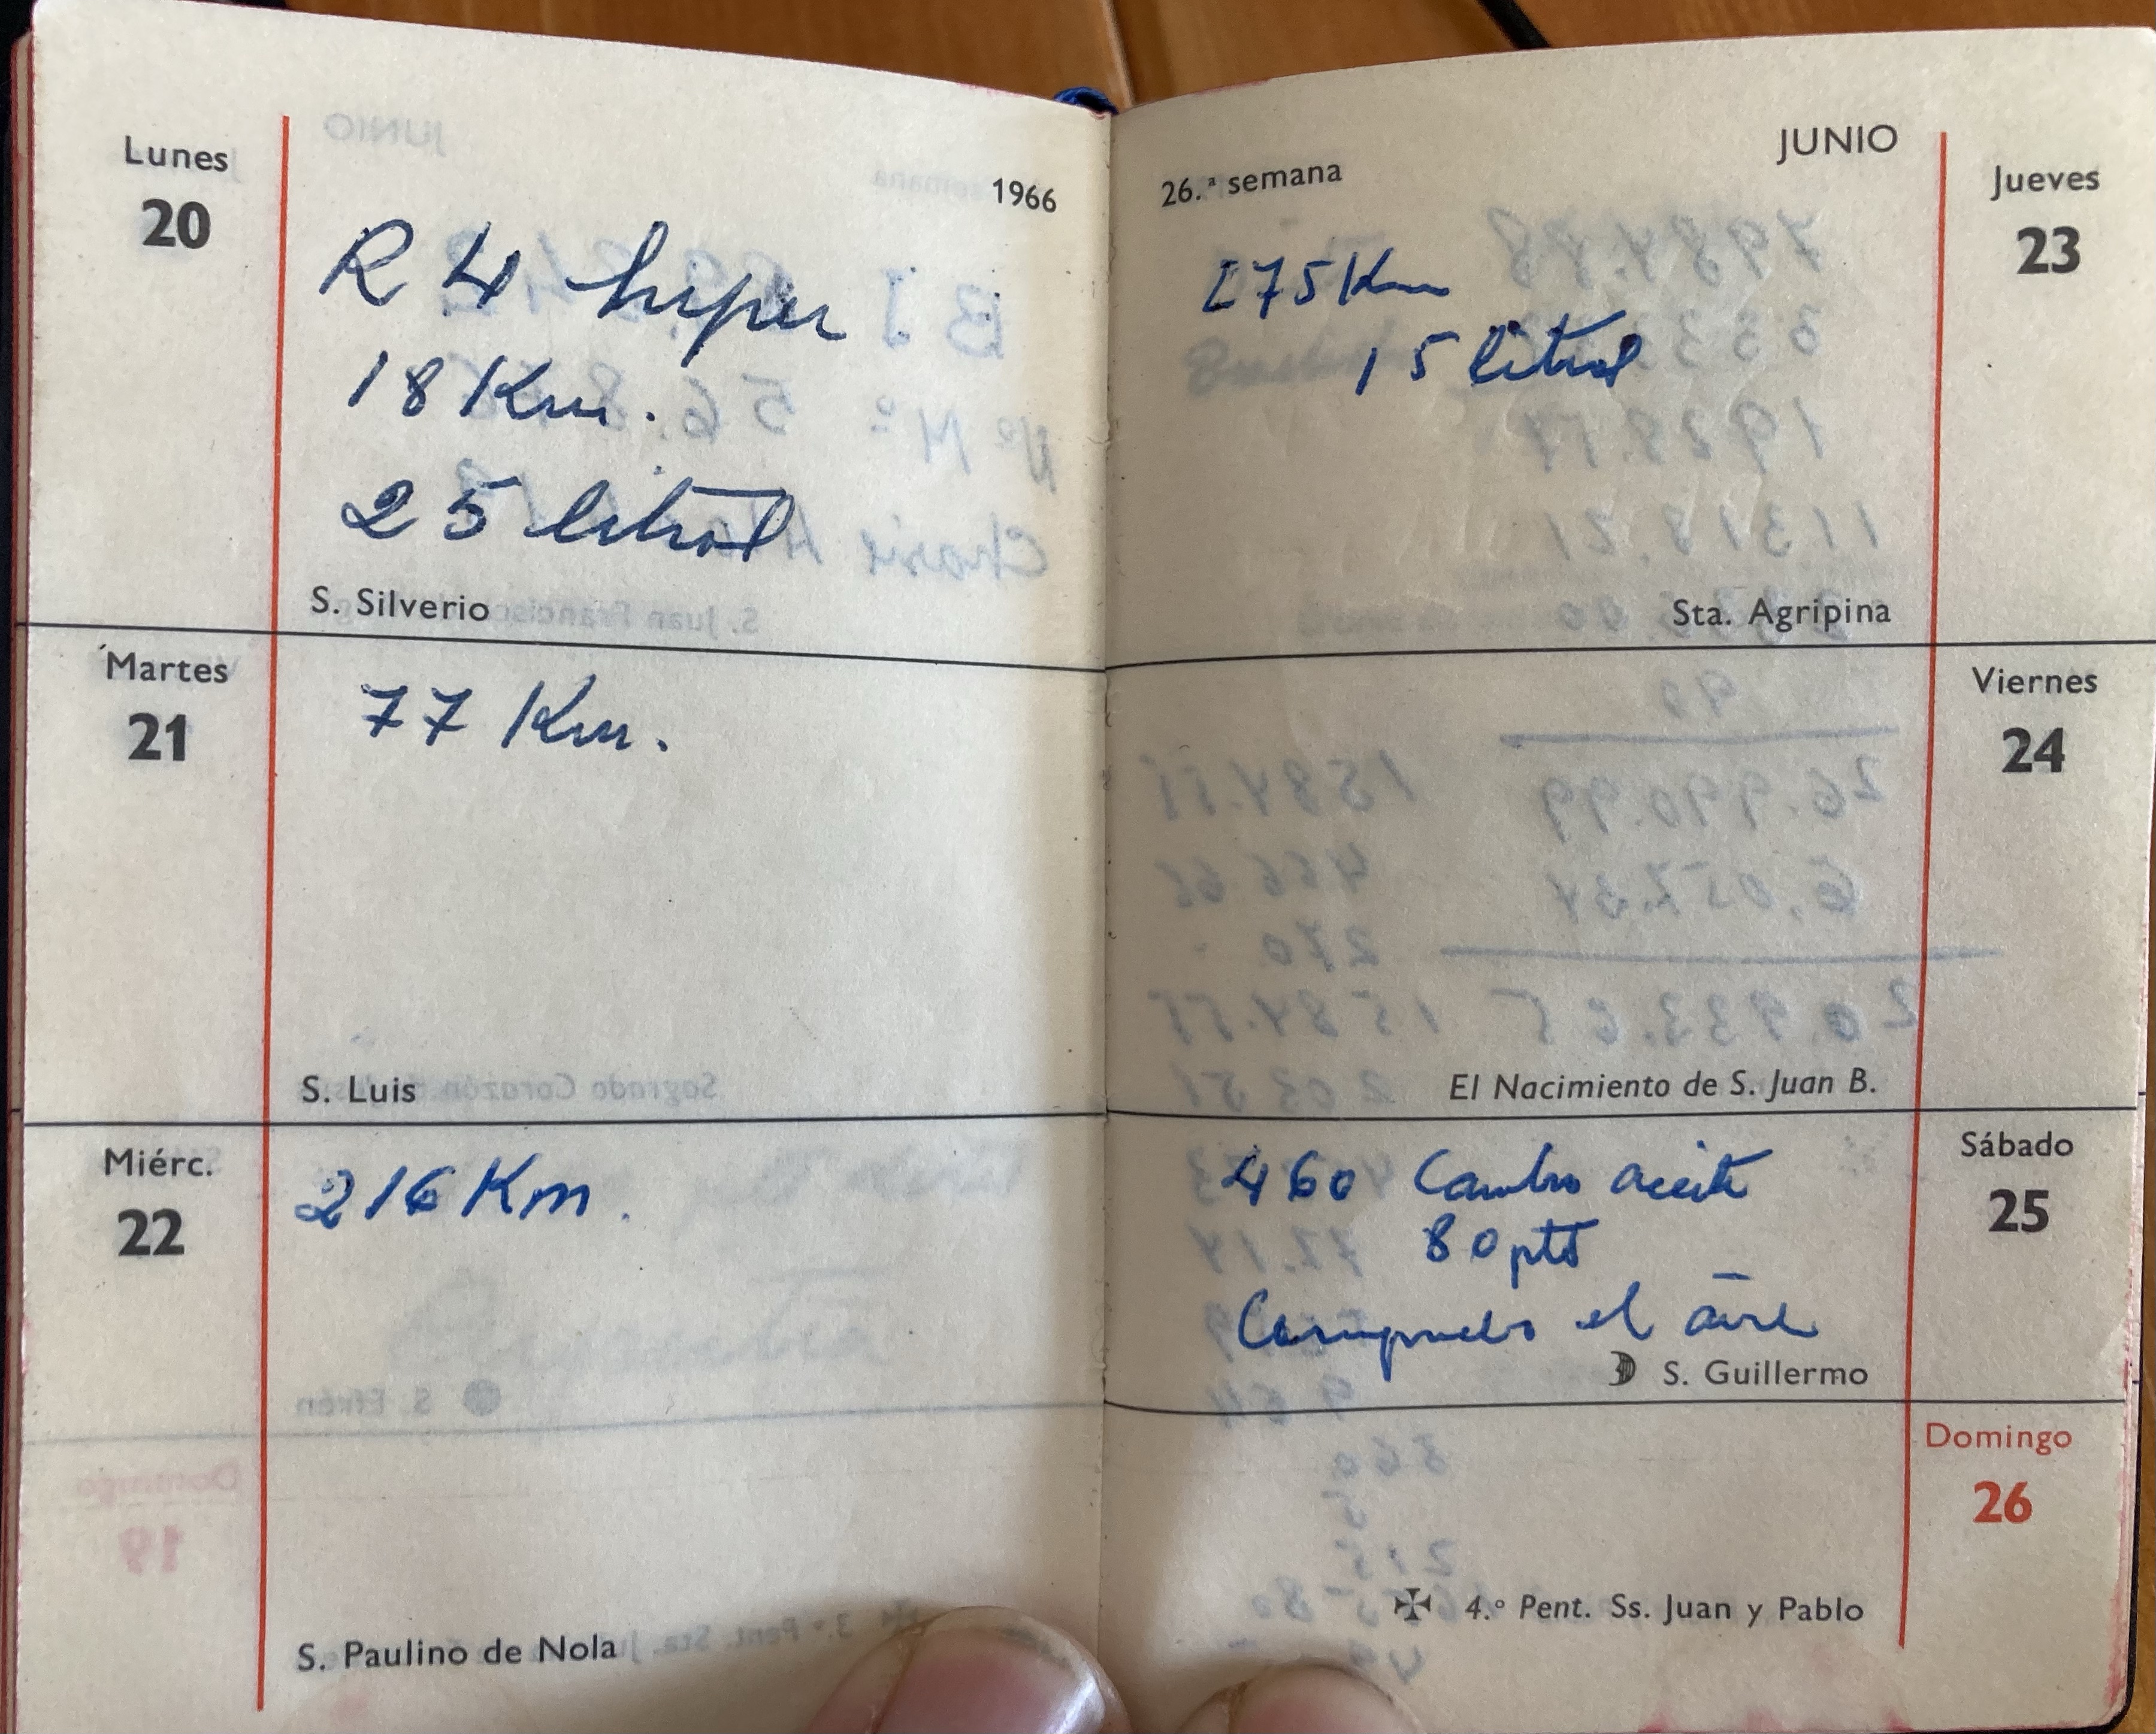 1966
Lunes
20
R 4 super
18 Km.
25 litros
S. Silverio
Martes
21
77 Km.
S. Luis
Miérc.
22
216 Km.
S. Paulino de Nola
JUNIO
26.ª semana
Jueves
23
275 Km
15 litros
Sta. Agripina
Viernes
24
El Nacimiento de S. Juan B.
Sábado
25
460 Cambio aceite
80 pts
Compruebo el aire
S. Guillermo
Domingo
26
4.º Pent. Ss. Juan y Pablo